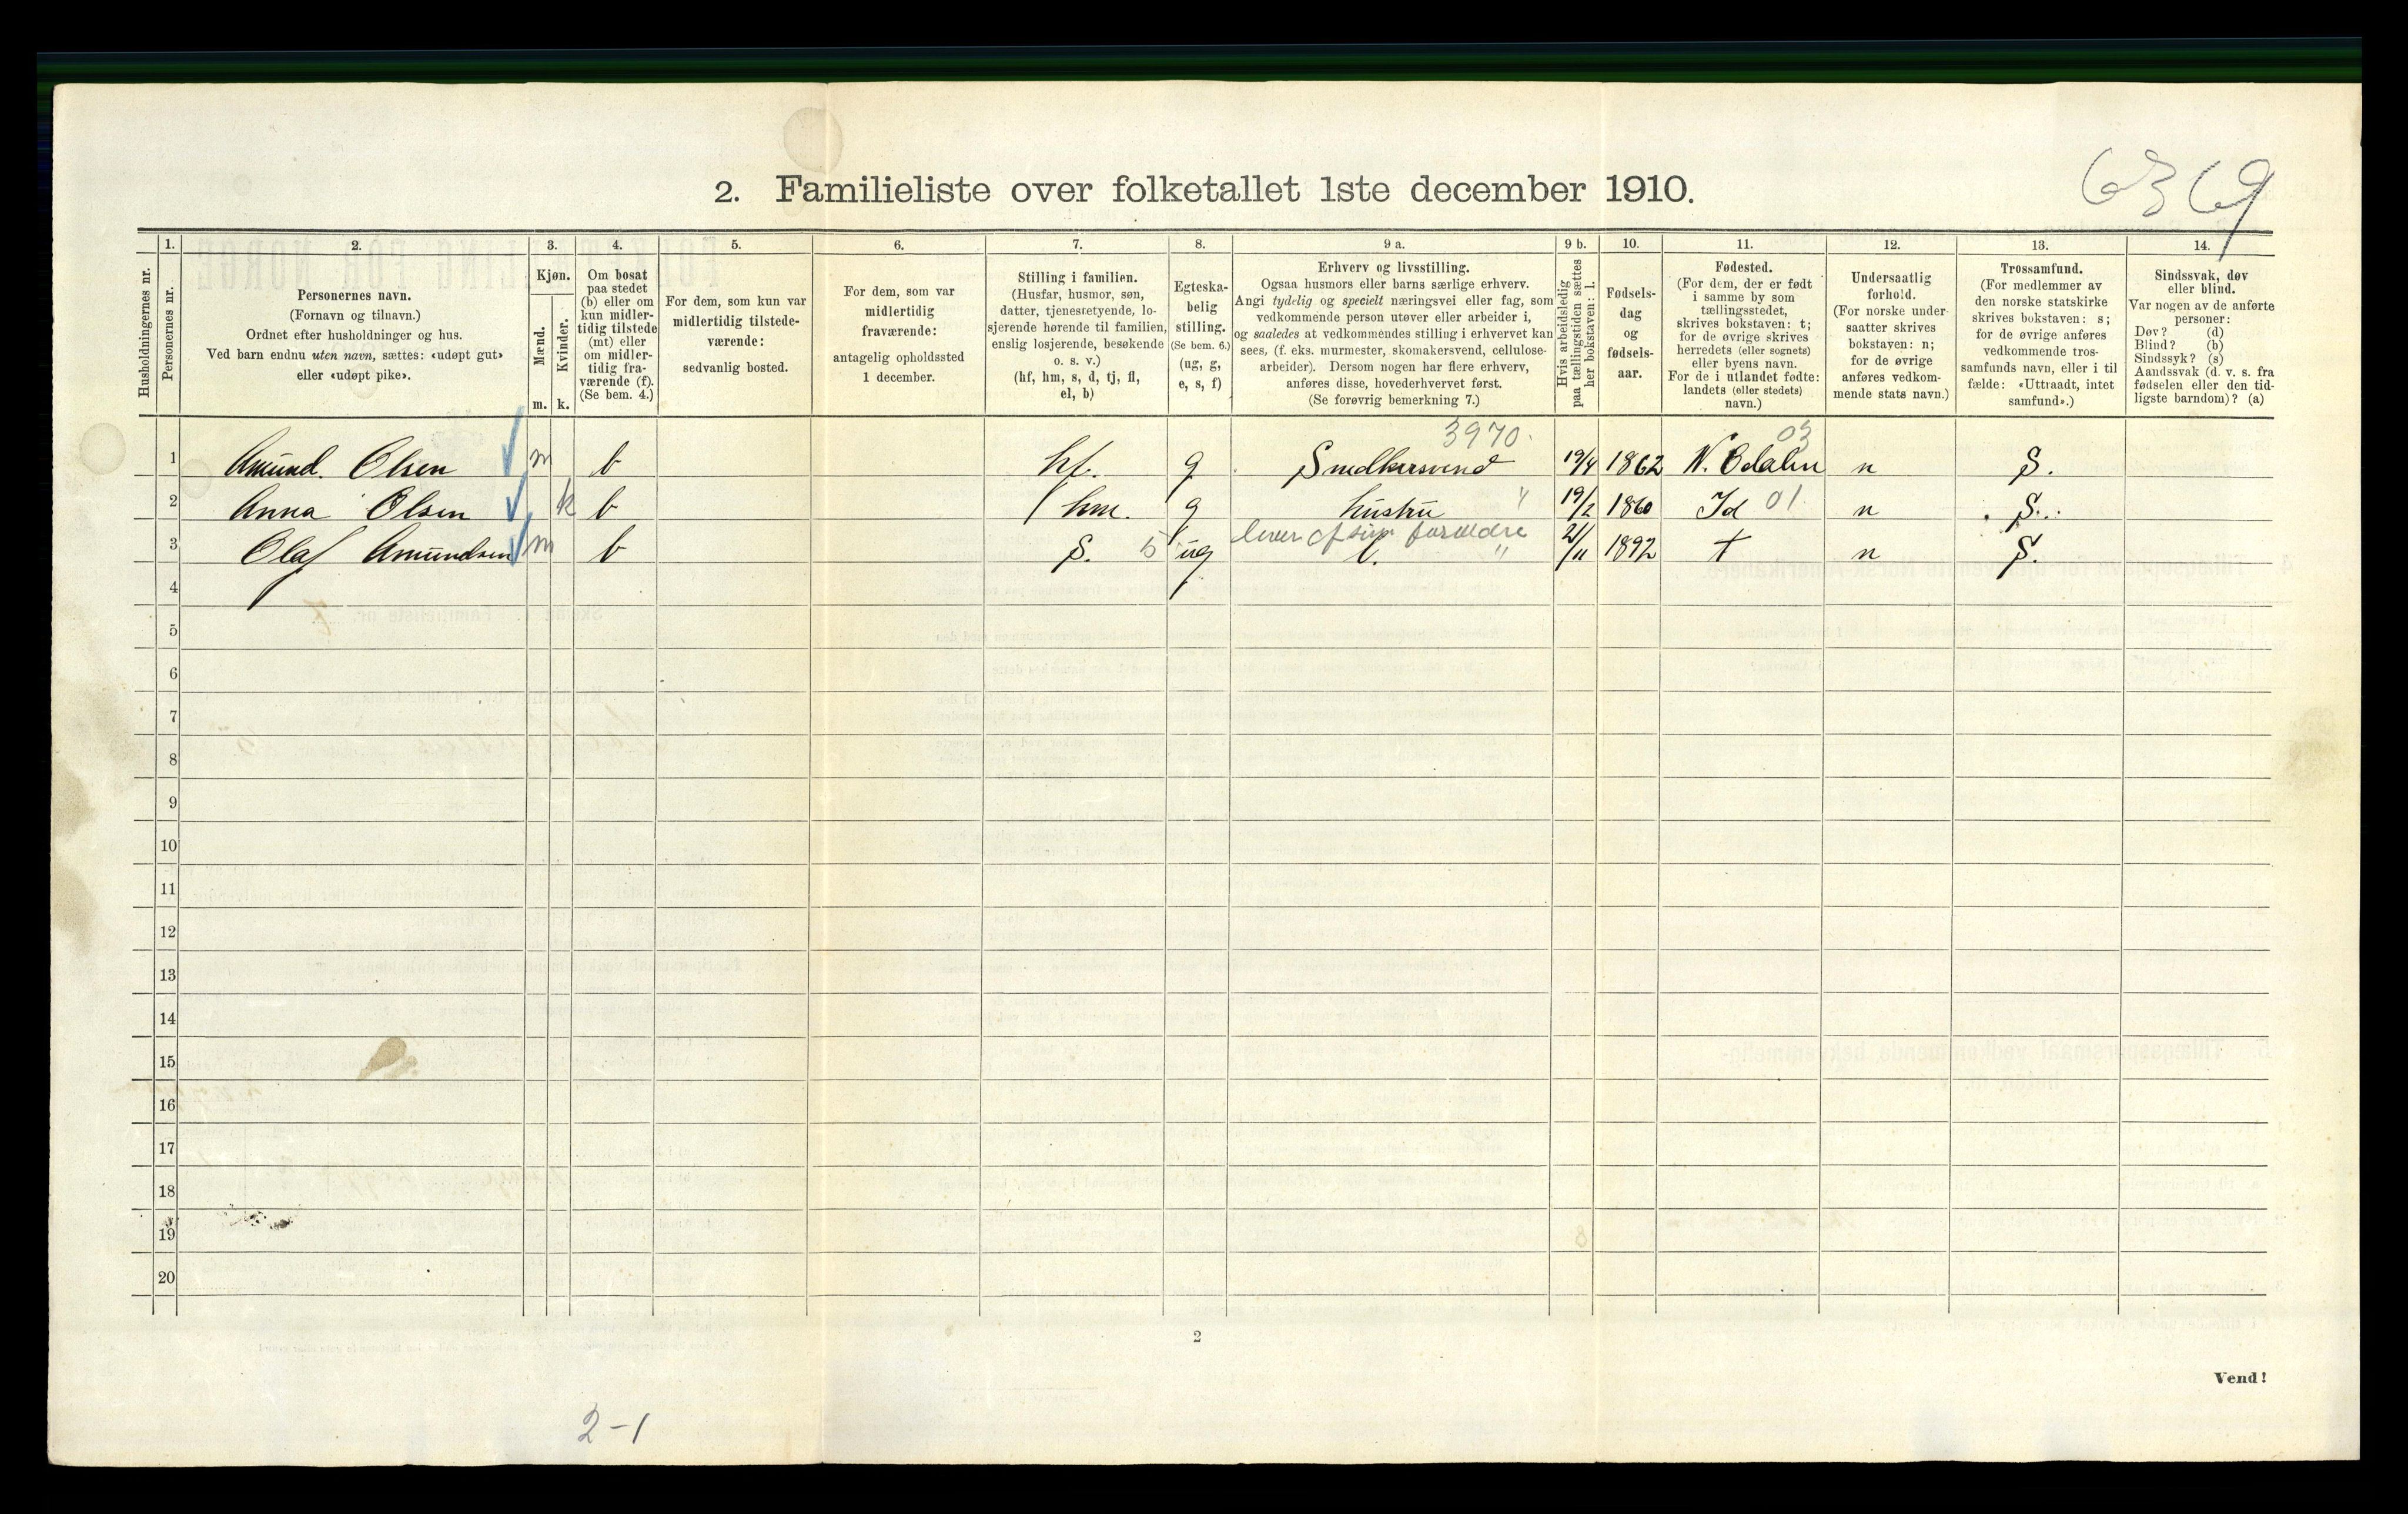 6369
2. Familieliste over folketallet 1ste december 1910.
Husholdningernes nr.
1.
Personernes nr.
2.
Personernes navn.
(Fornavn og tilnavn.)
Ordnet efter husholdninger og hus.
Ved barn endnu uten navn, sættes: «udøpt gut»
eller «udøpt pike».
3.
Kjøn.
Mænd.
m.
Kvinder.
k.
4.
Om bosat
paa stedet
(b) eller om
kun midler-
tidig tilstede
(mt) eller
om midler-
tidig fra-
værende (f).
(Se bem. 4.)
5.
For dem, som kun var
midlertidig tilstede-
værende:
sedvanlig bosted.
6.
For dem, som var
midlertidig
fraværende:
antagelig opholdssted
1 december.
7.
Stilling i familien.
(Husfar, husmor, søn,
datter, tjenestetyende, lo-
sjerende hørende til familien,
enslig losjerende, besøkende
o. s. v.)
(hf, hm, s, d, tj, fl,
el, b)
8.
Egteska-
belig
stilling.
(Se bem. 6.)
(ug, g,
e, s, f)
9 a.
Erhverv og livsstilling.
Ogsaa husmors eller barns særlige erhverv.
Angi tydelig og specielt næringsvei eller fag, som
vedkommende person utøver eller arbeider i,
og saaledes at vedkommendes stilling i erhvervet kan
sees, (f. eks. murmester, skomakersvend, cellulose-
arbeider). Dersom nogen har flere erhverv,
anføres disse, hovederhvervet først.
(Se forøvrig bemerkning 7.)
9 b.
Hvis arbeidsledig
paa tællingstiden sættes
her bokstaven: l.
10.
Fødsels-
dag
og
fødsels-
aar.
11.
Fødested.
(For dem, der er født
i samme by som
tællingsstedet,
skrives bokstaven: t;
for de øvrige skrives
herredets (eller sognets)
eller byens navn.
For de i utlandet fødte:
landets (eller stedets)
navn.)
12.
Undersaatlig
forhold.
(For norske under-
saatter skrives
bokstaven: n;
for de øvrige
anføres vedkom-
mende stats navn.)
13.
Trossamfund.
(For medlemmer av
den norske statskirke
skrives bokstaven: s;
for de øvrige anføres
vedkommende tros-
samfunds navn, eller i til-
fælde: «Uttraadt, intet
samfund».)
14.
Sindssvak, døv
eller blind.
Var nogen av de anførte
personer:
Døv? (d)
Blind? (b)
Sindssyk? (s)
Aandssvak (d. v. s. fra
fødselen eller den tid-
ligste barndom)? (a)
3970. 03
1 Amund. Olsen m b hf. g Smedkersvend 19/4 1862 N. Odalen n S.
2 Anna Olsen k b hm. g hustru " 19/2 1860 Id 01 n S.
lever af sine forældre
3 Olaf Amundsen m b S. 15 ug l. " 21/11 1892 t n S.
4
5
6
7
8
9
10
11
12
13
14
15
16
17
18
19
20
2
Vend!
2-1